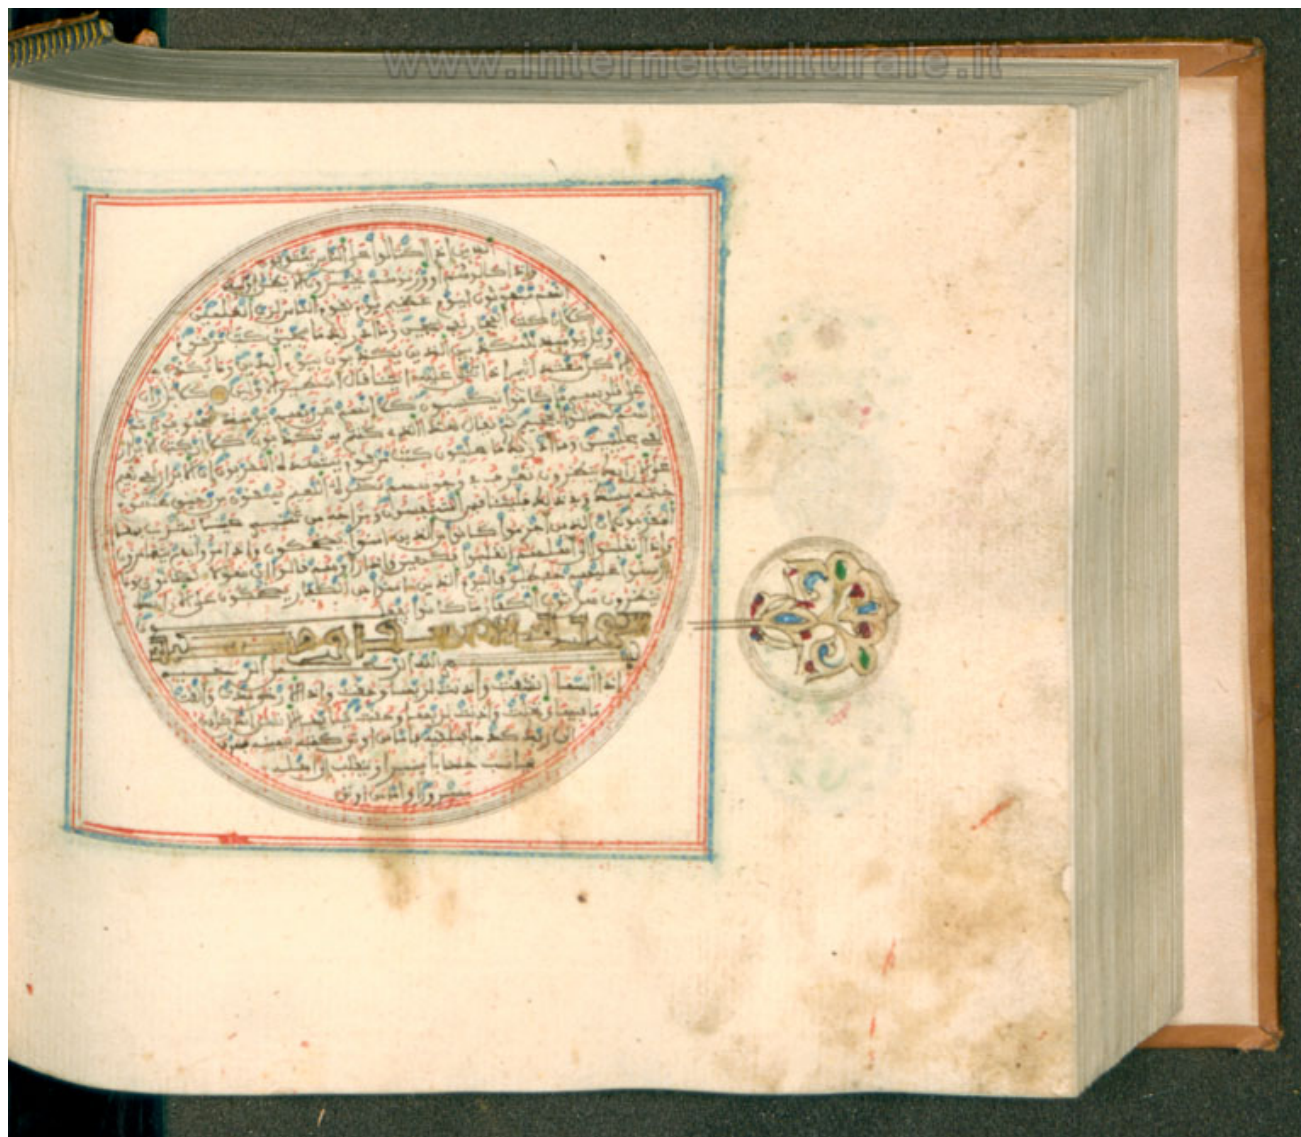 الذين إذا اكتالوا على الناس يستوفون
وإذا كالوهم أو وزنوهم يخسرون ألا يظن أولئك
أنهم مبعوثون ليوم عظيم يوم يقوم الناس لرب العلمين
كلا إن كتب الفجار لفي سجين وما أدريك ما سجين كتب مرقوم
ويل يومئذ للمكذبين الذين يكذبون بيوم الدين وما يكذب به
إلا كل معتد أثيم إذا تتلى عليه ءايتنا قال أسطير الأولين كلا بل ران
على قلوبهم ما كانوا يكسبون كلا إنهم عن ربهم يومئذ لمحجوبون ثم
إنهم لصالوا الجحيم ثم يقال هذا الذي كنتم به تكذبون كلا إن كتب الأبرار
لفي عليين وما أدريك ما عليون كتب مرقوم يشهده المقربون إن الأبرار لفي نعيم
على الأرائك ينظرون تعرف في وجوههم نضرة النعيم يسقون من رحيق مختوم
ختمه مسك وفي ذلك فليتنافس المتنفسون ومزاجه من تسنيم عينا يشرب بها
المقربون إن الذين أجرموا كانوا من الذين ءامنوا يضحكون وإذا مروا بهم يتغامزون
وإذا انقلبوا إلى أهلهم انقلبوا فكهين وإذا رأوهم قالوا إن هؤلاء لضالون وما
أرسلوا عليهم حفظين فاليوم الذين ءامنوا من الكفار يضحكون على الأرائك
ينظرون هل ثوب الكفار ما كانوا يفعلون
بسم الله الرحمن الرحيم
إذا السماء انشقت وأذنت لربها وحقت وإذا الأرض مدت وألقت
ما فيها وتخلت وأذنت لربها وحقت يأيها الإنسن إنك كادح
إلى ربك كدحا فملقيه فأما من أوتي كتبه بيمينه فسوف
يحاسب حسابا يسيرا وينقلب إلى أهله
مسرورا وأما من أوتي
www.internetculturale.it